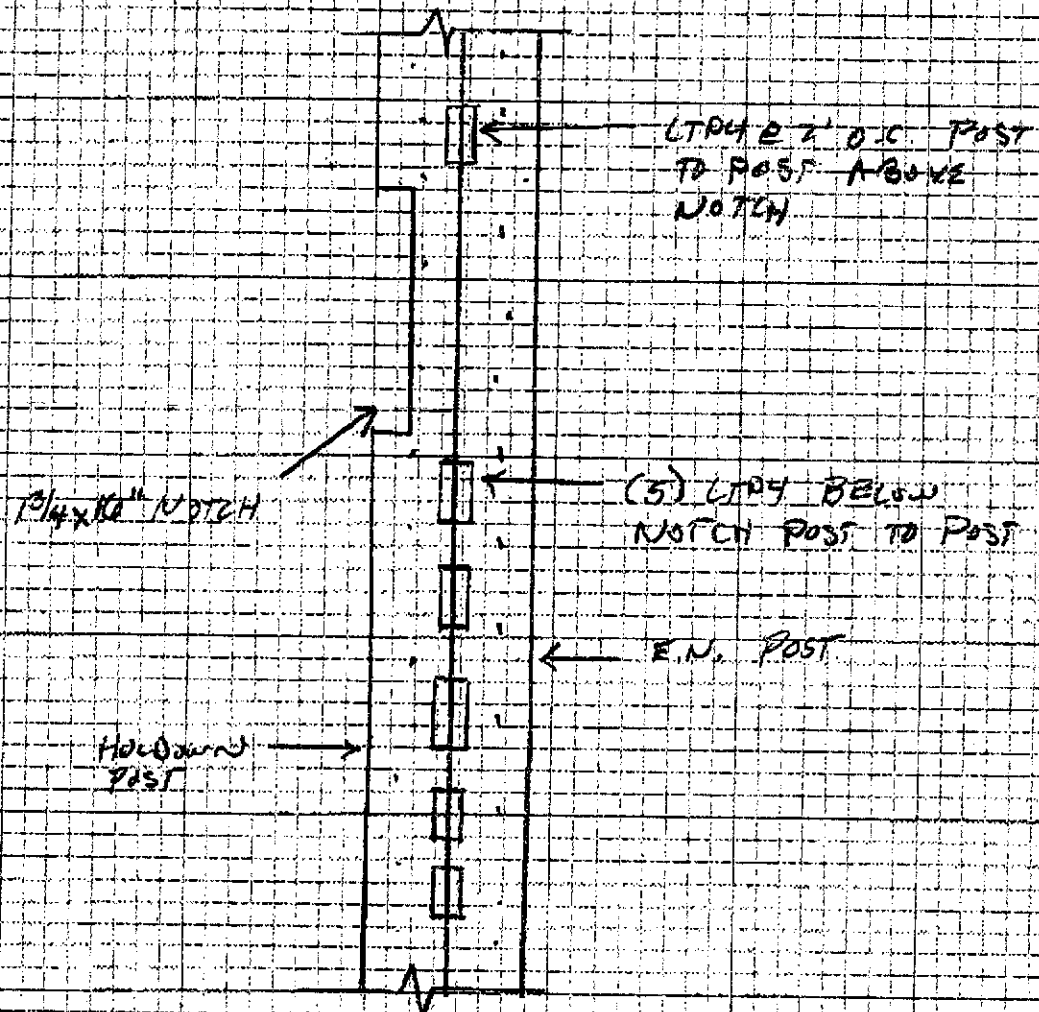 LTP4 @ 2' O.C. POST
TO POST ABOVE
NOTCH
1 3/4 x 16" NOTCH
(5) LTP4 BELOW
NOTCH POST TO POST
E.N. POST
HOLDOWN
POST